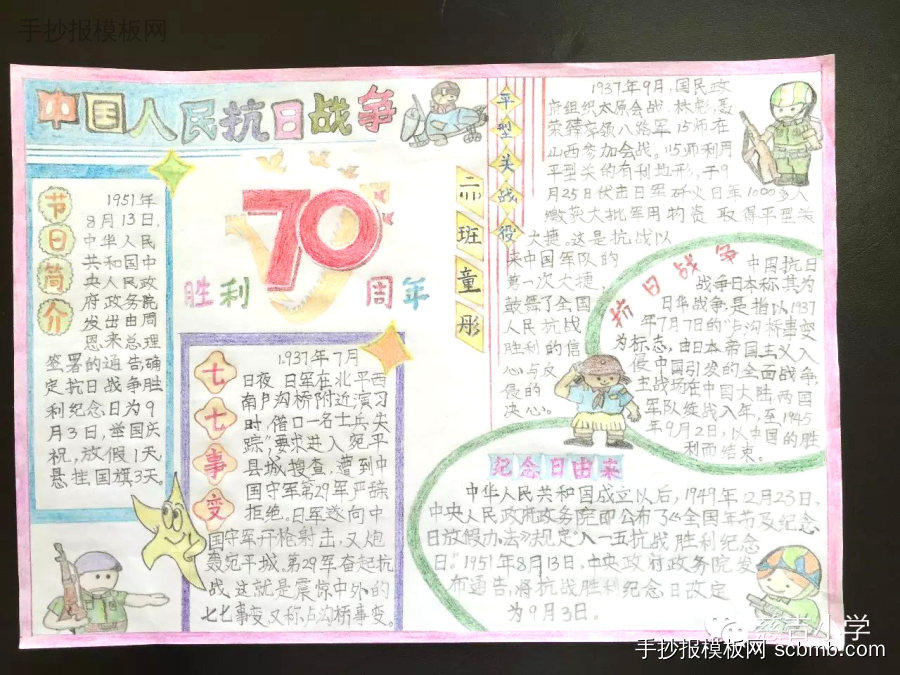 手抄报模板网
中国人民抗日战争
70
胜利 周年
节日简介
1951年
8月13日,
中华人民
共和国中
央人民政
府政务院
发出由周
恩来总理
签署的通告,确
定抗日战争胜
利纪念日为9
月3日,举国庆
祝,放假1天,
悬挂国旗3天。
七七事变
1937年7月
日夜 日军在北平西
南卢沟桥附近演习
时,借口一名士兵"失
踪"要求进入宛平
县城搜查,遭到中
国守军第29军严辞
拒绝。日军遂向中
国守军开枪射击,又炮
轰宛平城,第29军奋起抗
战 这就是震惊中外的
七七事变又称卢沟桥事变。
班童彤
平型关战役
1937年9月,国民政
府组织太原会战 林彪,聂
荣臻率领八路军 115师在
山西参加会战。115师利用
平型关的有利地形,于9
月25日伏击日军 歼灭日军1000多人
缴获大批军用物资 取得平型关
大捷。这是抗战以
来中国军队的
第一次大捷,
鼓舞了全国
人民抗战
胜利的信
心与反
侵的
决心。
抗日战争
中国抗日
战争日本称其为
日华战争,是指以1937
年7月7日的"卢沟桥事变
为标志,由日本帝国主义入
侵中国引发的全面战争,
主战场在中国大陆,两国
军队缠战八年,至1945
年9月2日,以中国的胜
利而结束。
纪念日由来
中华人民共和国成立以后,1949年12月23日,
中央人民政府政务院即公布了《全国年节及纪念
日放假办法》规定"八一五抗战胜利纪念
日"。1951年8月13日,中央政府政务院发
布通告,将抗战胜利纪念日改定
为9月3日。
慈吉小学
手抄报模板网 scbmb.com